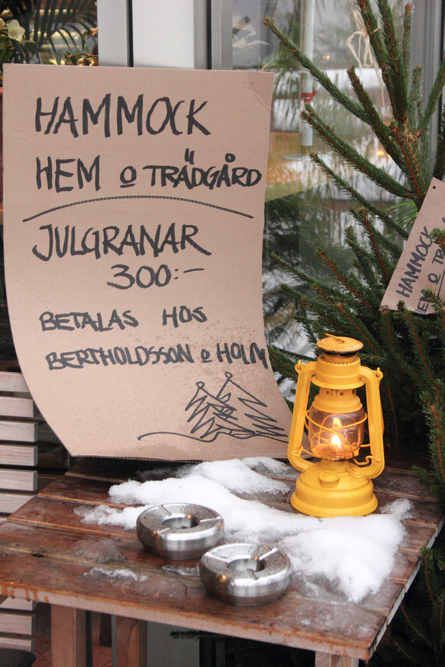 HAMMOCK
HEM o TRÄDGÅRD
JULGRANAR
300:-
BETALAS HOS
BERTHOLDSSON o HOLM
HAMMOCK